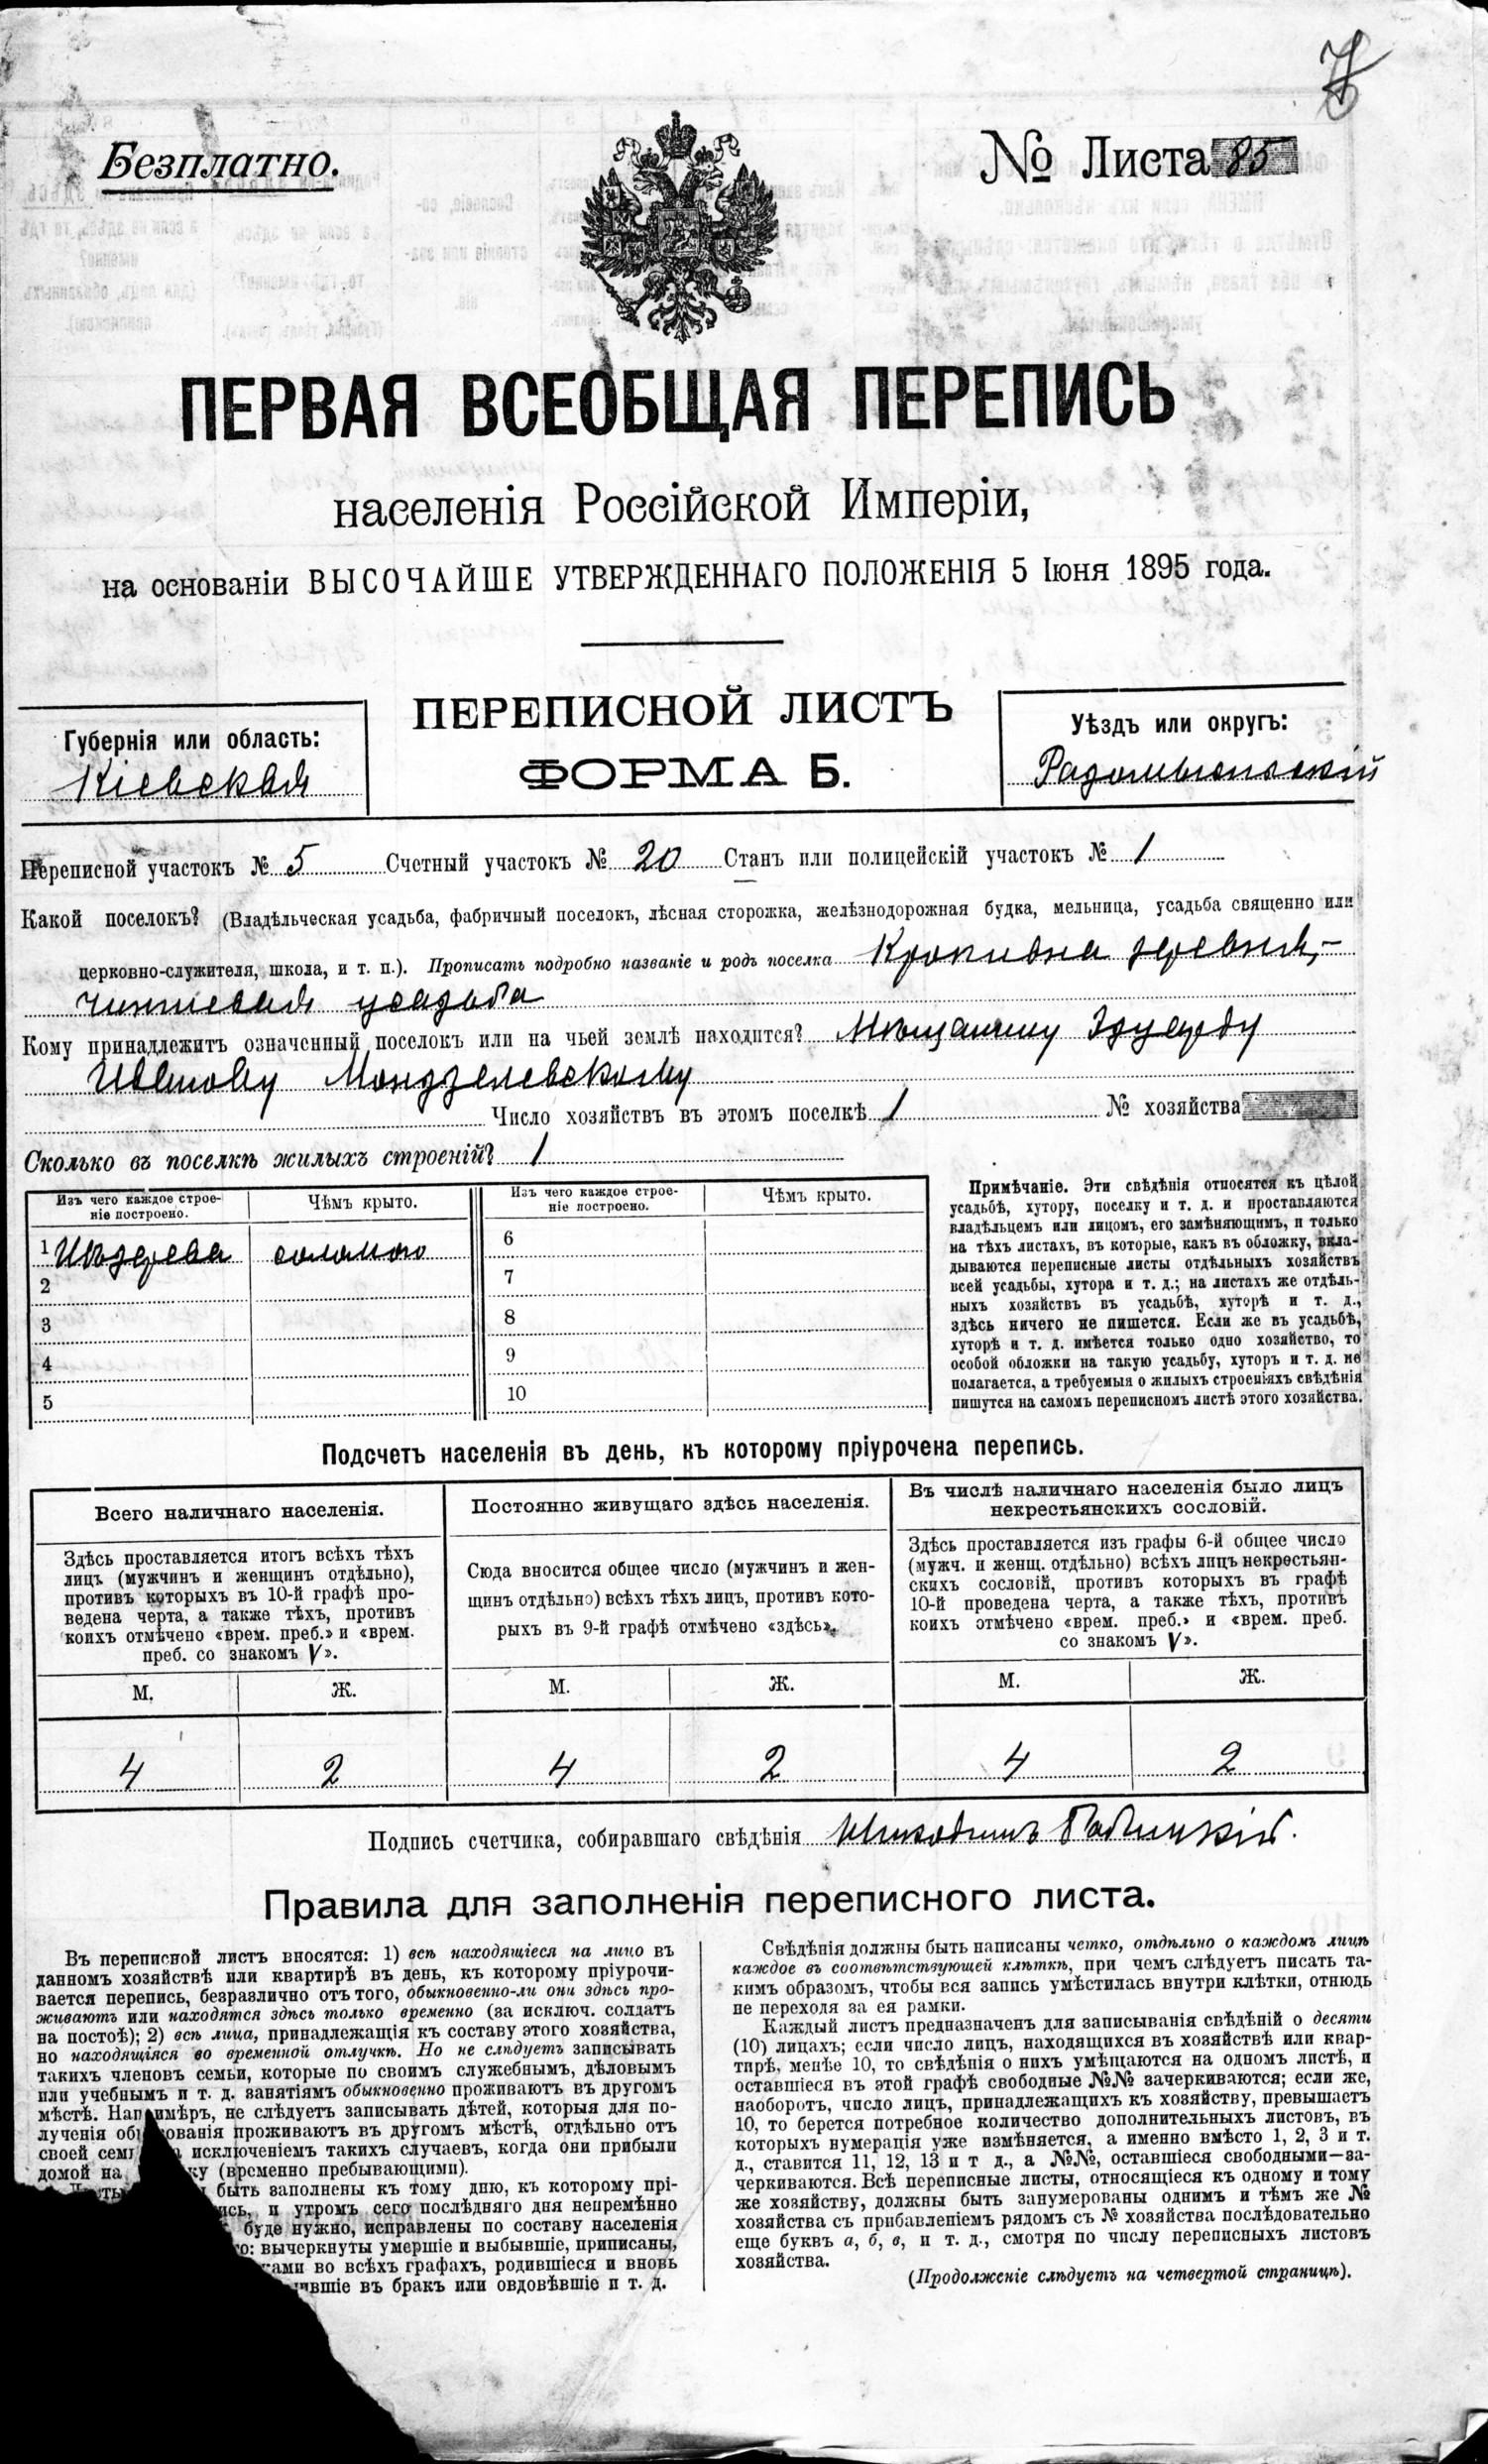 7
Безплатно.
№ Листа 85
ПЕРВАЯ ВСЕОБЩАЯ ПЕРЕПИСЬ
населенія Россійской Имперіи,
на основаніи ВЫСОЧАЙШЕ УТВЕРЖДЕННАГО ПОЛОЖЕНІЯ 5 Іюня 1895 года.
ПЕРЕПИСНОЙ ЛИСТЪ
ФОРМА Б.
Губернія или область:
Кіевская
Уѣздъ или округъ:
Радомысльскій
Переписной участокъ № 5 Счетный участокъ № 20 Станъ или полицейскій участокъ № 1
Какой поселокъ? (Владѣльческая усадьба, фабричный поселокъ, лѣсная сторожка, желѣзнодорожная будка, мельница, усадьба священно или
церковно-служителя, школа, и т. п.). Прописать подробно названіе и родъ поселка Кропивна деревня,
усадьба
Кому принадлежитъ означенный поселокъ или на чьей землѣ находится? Мѣщанину Эдуарду
Ивановому Мондзелевскому
Число хозяйствъ въ этомъ поселкѣ 1 № хозяйства
Сколько въ поселкѣ жилыхъ строеній? 1
Изъ чего каждое строе-
ніе построено.
Чѣмъ крыто.
Изъ чего каждое строе-
ніе построено.
Чѣмъ крыто.
1 Изъ дерева соломою
2
3
4
5
6
7
8
9
10
Примѣчаніе. Эти свѣдѣнія относятся къ цѣлой
усадьбѣ, хутору, поселку и т. д. и проставляются
владѣльцемъ или лицомъ, его замѣняющимъ, и только
на тѣхъ листахъ, въ которые, какъ въ обложку, вкла-
дываются переписные листы отдѣльныхъ хозяйствъ
всей усадьбы, хутора и т. д.; на листахъ же отдѣль-
ныхъ хозяйствъ въ усадьбѣ, хуторѣ и т. д.,
здѣсь ничего не пишется. Если же въ усадьбѣ,
хуторѣ и т. д. имѣется только одно хозяйство, то
особой обложки на такую усадьбу, хуторъ и т. д. не
полагается, а требуемыя о жилыхъ строеніяхъ свѣдѣнія
пишутся на самомъ переписномъ листѣ этого хозяйства.
Подсчетъ населенія въ день, къ которому пріурочена перепись.
Всего наличнаго населенія.
Здѣсь проставляется итогъ всѣхъ тѣхъ
лицъ (мужчинъ и женщинъ отдѣльно),
противъ которыхъ въ 10-й графѣ про-
ведена черта, а также тѣхъ, противъ
коихъ отмѣчено «врем. преб.» и «врем.
преб. со знакомъ V».
М. Ж.
4 2
Постоянно живущаго здѣсь населенія.
Сюда вносится общее число (мужчинъ и жен-
щинъ отдѣльно) всѣхъ тѣхъ лицъ, противъ кото-
рыхъ въ 9-й графѣ отмѣчено «здѣсь».
М. Ж.
4 2
Въ числѣ наличнаго населенія было лицъ
некрестьянскихъ сословій.
Здѣсь проставляется изъ графы 6-й общее число
(мужч. и женщ. отдѣльно) всѣхъ лицъ некрестьян-
скихъ сословій, противъ которыхъ въ графѣ
10-й проведена черта, а также тѣхъ, противъ
коихъ отмѣчено «врем. преб.» и «врем. преб.
со знакомъ V».
М. Ж.
4 2
Подпись счетчика, собиравшаго свѣдѣнія Никодимъ
Правила для заполненія переписного листа.
Въ переписной листъ вносятся: 1) всѣ находящіеся на лицо въ
данномъ хозяйствѣ или квартирѣ въ день, къ которому пріурочи-
вается перепись, безразлично отъ того, обыкновенно-ли они здѣсь про-
живаютъ или находятся здѣсь только временно (за исключ. солдатъ
на постоѣ); 2) всѣ лица, принадлежащія къ составу этого хозяйства,
но находящіяся во временной отлучкѣ. Но не слѣдуетъ записывать
такихъ членовъ семьи, которые по своимъ служебнымъ, дѣловымъ
или учебнымъ и т. д. занятіямъ обыкновенно проживаютъ въ другомъ
мѣстѣ. Напримѣръ, не слѣдуетъ записывать дѣтей, которыя для по-
лученія образованія проживаютъ въ другомъ мѣстѣ, отдѣльно отъ
своей сем исключеніемъ такихъ случаевъ, когда они прибыли
домой на ку (временно пребывающими).
быть заполнены къ тому дню, къ которому прі-
ись, и утромъ сего послѣдняго дня непремѣнно
буде нужно, исправлены по составу населенія
о: вычеркнуты умершіе и выбывшіе, приписаны,
ками во всѣхъ графахъ, родившіеся и вновь
ившіе въ бракъ или овдовѣвшіе и т. д.
Свѣдѣнія должны быть написаны четко, отдѣльно о каждомъ лицѣ
каждое въ соотвѣтствующей клѣткѣ, при чемъ слѣдуетъ писать та-
кимъ образомъ, чтобы вся запись умѣстилась внутри клѣтки, отнюдь
не переходя за ея рамки.
Каждый листъ предназначенъ для записыванія свѣдѣній о десяти
(10) лицахъ; если число лицъ, находящихся въ хозяйствѣ или квар-
тирѣ, менѣе 10, то свѣдѣнія о нихъ умѣщаются на одномъ листѣ, и
оставшіеся въ этой графѣ свободные №№ зачеркиваются; если же,
наоборотъ, число лицъ, принадлежащихъ къ хозяйству, превышаетъ
10, то берется потребное количество дополнительныхъ листовъ, въ
которыхъ нумерація уже измѣняется, а именно вмѣсто 1, 2, 3 и т.
д., ставится 11, 12, 13 и т д., а №№, оставшіеся свободными—за-
черкиваются. Всѣ переписные листы, относящіеся къ одному и тому
же хозяйству, должны быть занумерованы однимъ и тѣмъ же №
хозяйства съ прибавленіемъ рядомъ съ № хозяйства послѣдовательно
еще буквъ а, б, в, и т. д., смотря по числу переписныхъ листовъ
хозяйства.
(Продолженіе слѣдуетъ на четвертой страницѣ).